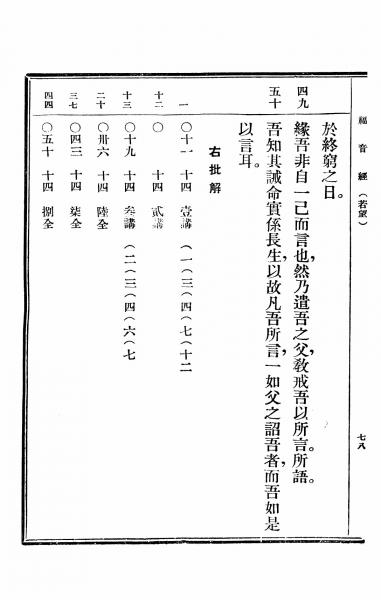 福音經（若望）
七八
於終窮之日。
四九
緣吾非自一己而言也，然乃遣吾之父，敎戒吾以所言。所語。
五十
吾知其誡命實係長生，以故凡吾所言，一如父之詔吾者，而吾如是
以言耳。
右批解
一 〇十一 十四 壹講 （一（三（四（七（十二
十二 〇 十四 貳講
十三 〇十九 十四 叁講 （二（三（四（六（七
二十 〇卅六 十四 陸全
三七 〇四三 十四 柒全
四四 〇五十 十四 捌全